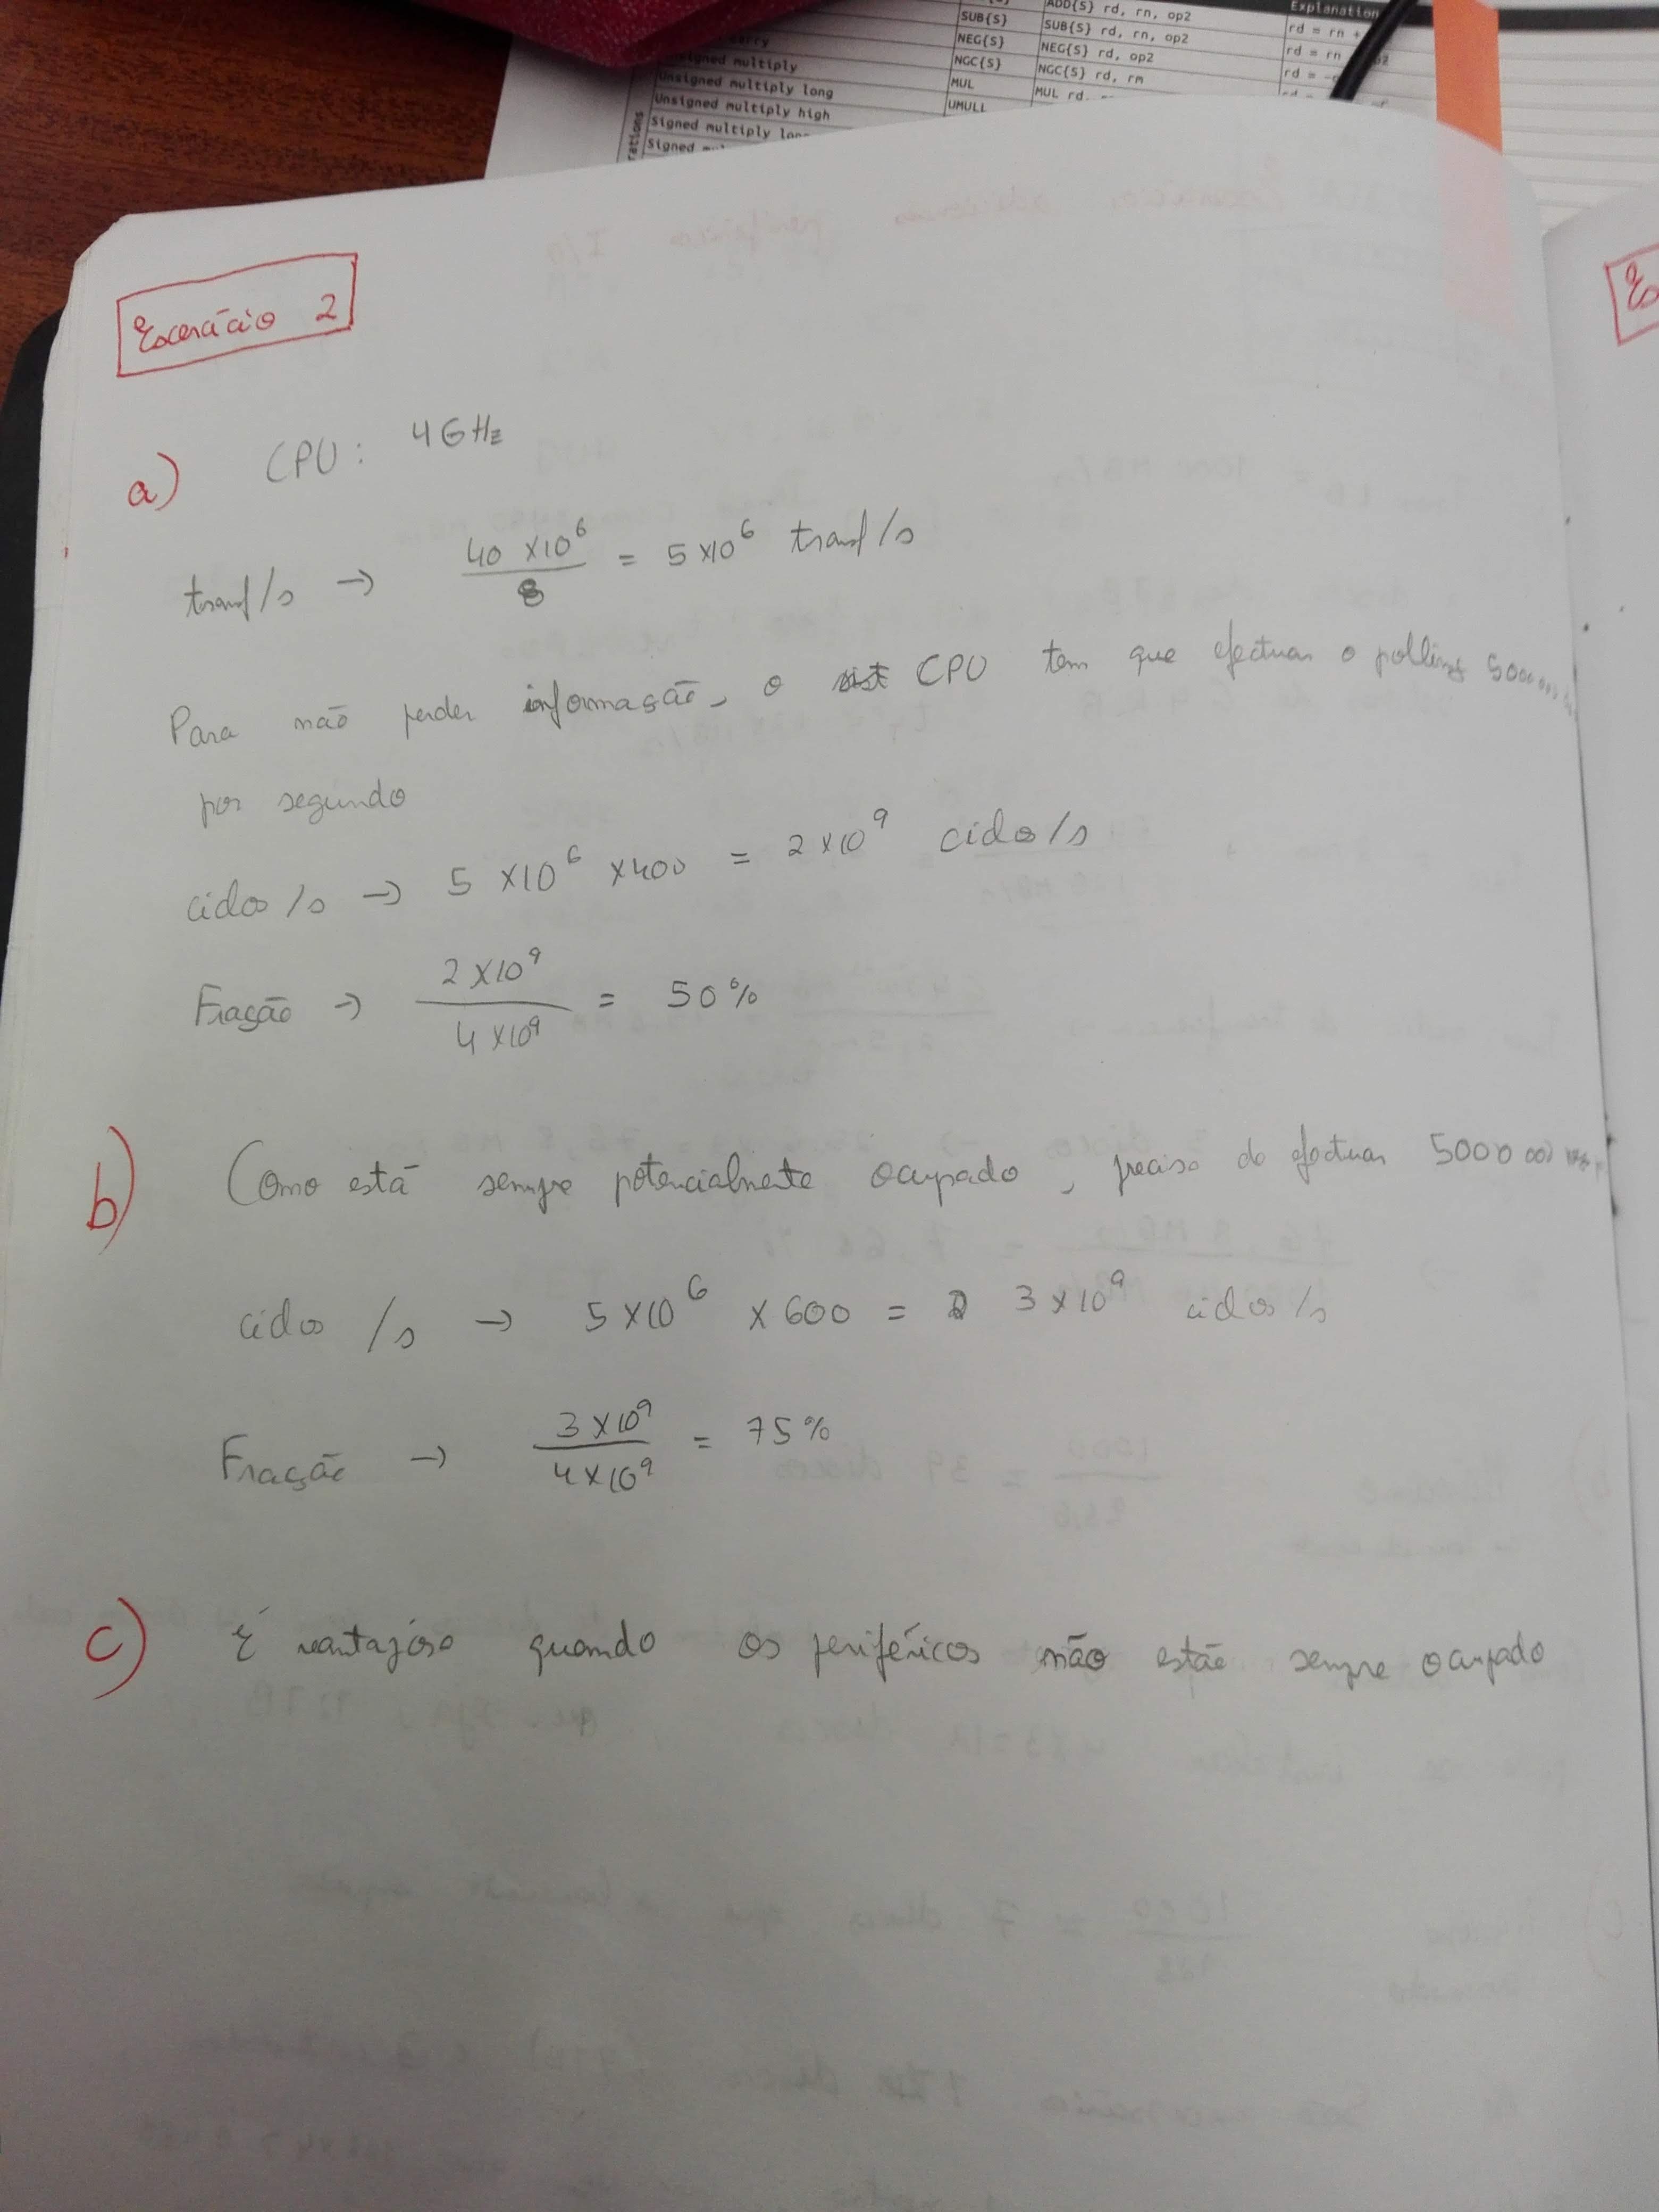 ADD{S} rd, rn, op2
Explanation
SUB{S}
SUB{S} rd, rn, op2
rd = rn +
NEG{S}
NEG{S} rd, op2
rd = rn
signed multiply
NGC{S}
NGC{S} rd, rm
rd =
Unsigned multiply long
MUL
MUL rd,
Unsigned multiply high
UMULL
Signed multiply
Signed
Exercício 2
a) CPU: 4GHz
transf/s → 40 ×10⁶ / 8 = 5 ×10⁶ transf/s
Para não perder informação, o CPU tem que efectuar o polling
por segundo
ciclos/s → 5 ×10⁶ ×400 = 2 ×10⁹ ciclos/s
Fração → 2 ×10⁹ / 4 ×10⁹ = 50%
b) Como está sempre potencialmente ocupado, precisa de efectuar 5000 000
ciclos /s → 5 ×10⁶ × 600 = 3 ×10⁹ ciclos/s
Fração → 3 ×10⁹ / 4 ×10⁹ = 75%
c) É vantajoso quando os periféricos não estão sempre ocupado